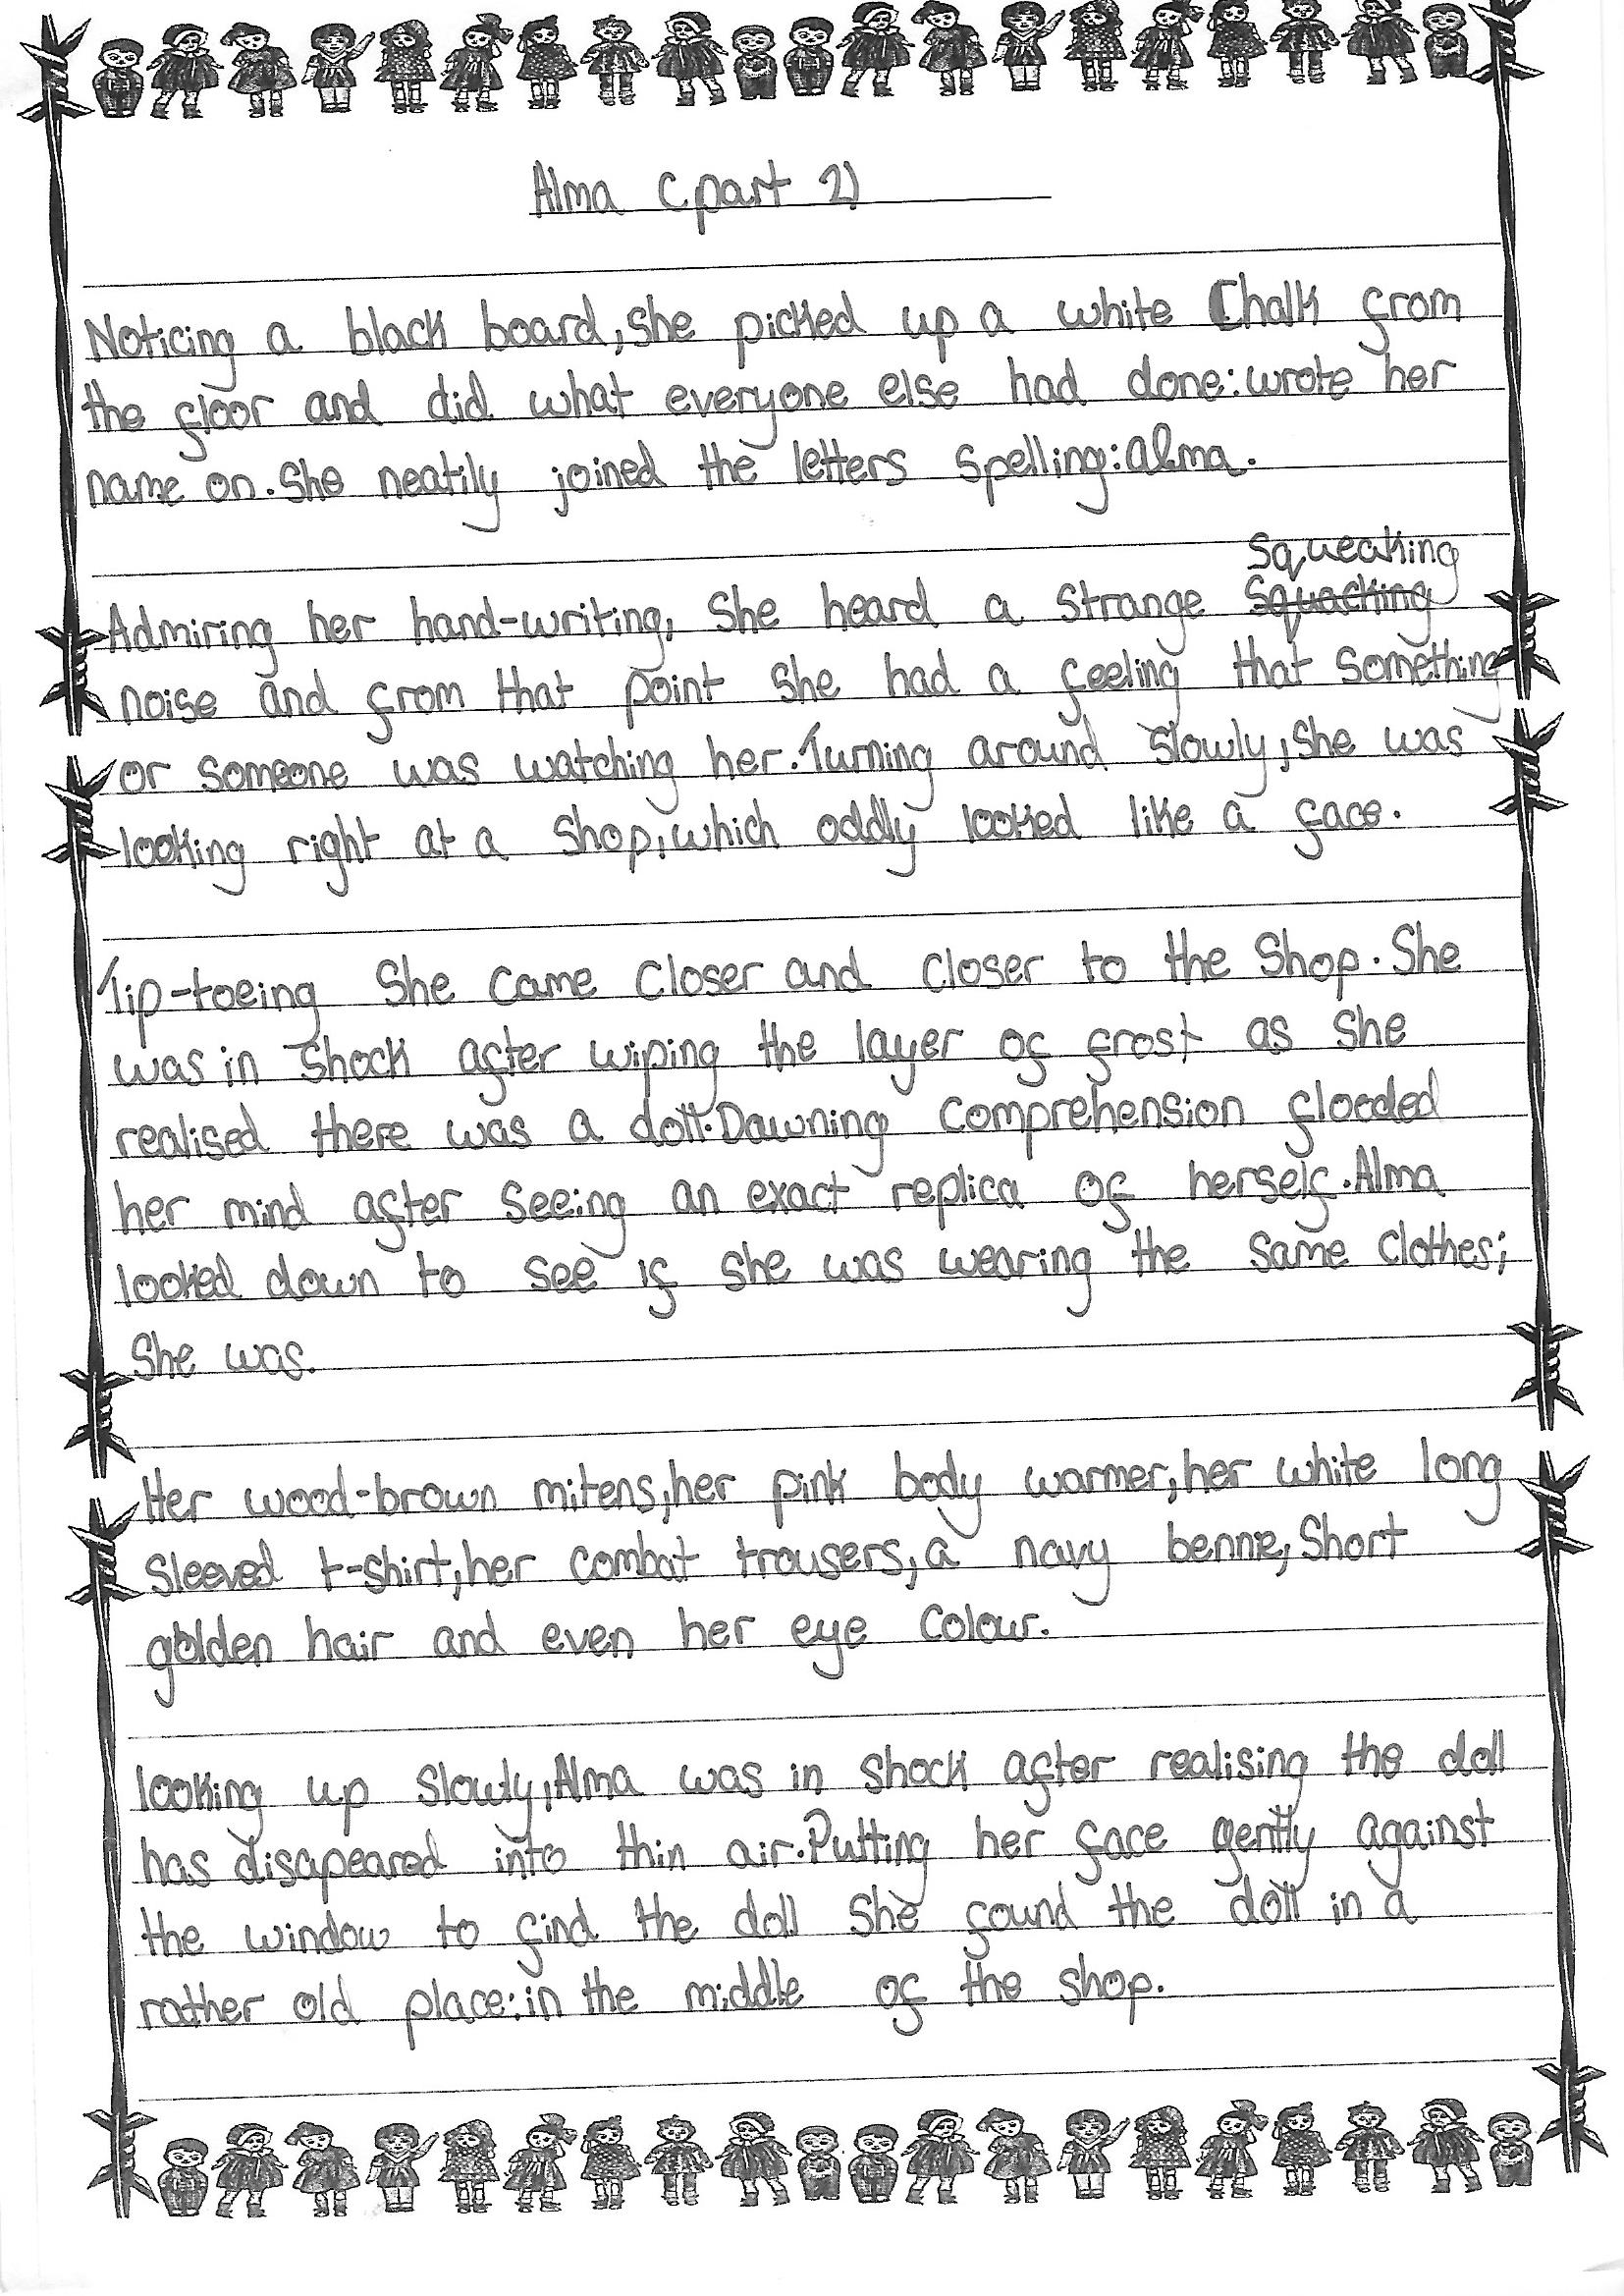 Alma (part 2)
Noticing a black board, she picked up a white Chalk from
the floor and did what everyone else had done: wrote her
name on. She neatily joined the letters spelling: alma.
squeaking
Admiring her hand-writing, she heard a strange squacking
noise and from that point she had a feeling that something
or someone was watching her. Turning around slowly, she was
looking right at a shop, which oddly looked like a face.
Tip-toeing she came closer and closer to the shop. She
was in shock after wiping the layer of frost as she
realised there was a doll. Dawning comprehension flooded
her mind after seeing an exact replica of herself. Alma
looked down to see if she was wearing the same clothes;
she was.
Her wood-brown mitens; her pink body warmer; her white long
sleeved t-shirt; her combat trousers; a navy bennie; short
golden hair and even her eye colour.
looking up slowly, Alma was in shock after realising the doll
has disapeared into thin air. Putting her face gently against
the window to find the doll she found the doll in a
rather old place: in the middle of the shop.